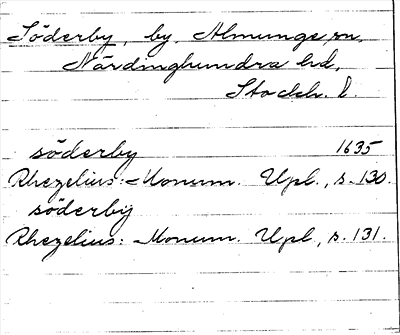 Söderby, by, Almunge sn,
Närdinghundra hd,
Stockh. l.
söderby 1635
Rhezelius: Monum. Upl., s. 130.
söderbÿ
Rhezelius: Monum. Upl., s. 131.